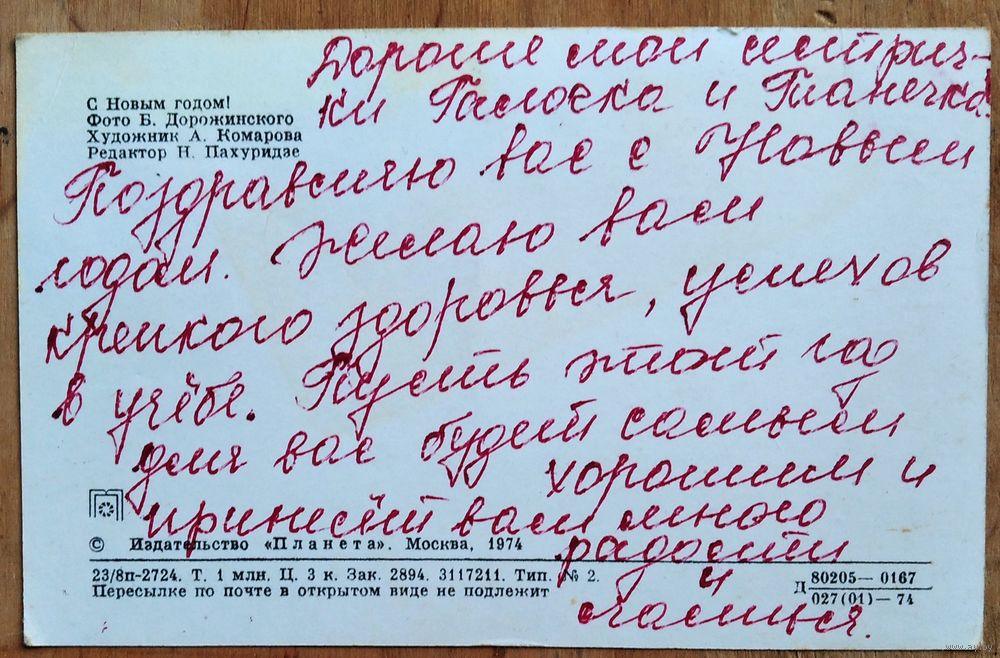 Дорогие мои сестрич-
ки Галочка и Танечка!
С Новым годом!
Фото Б. Дорожинского
Художник А. Комарова
Редактор Н. Пахуридзе
Поздравляю вас с Новым
годом. Желаю вам
крепкого здоровья, успехов
в учёбе. Пусть этот год
для вас будет самым
хорошим и
принесёт вам много
радости
и
счастья.
© Издательство «Планета». Москва, 1974
23/8п-2724. Т. 1 млн. Ц. 3 к. Зак. 2894. 3117211. Тип. № 2.
Пересылке по почте в открытом виде не подлежит
Д 80205—0167
027(01)—74